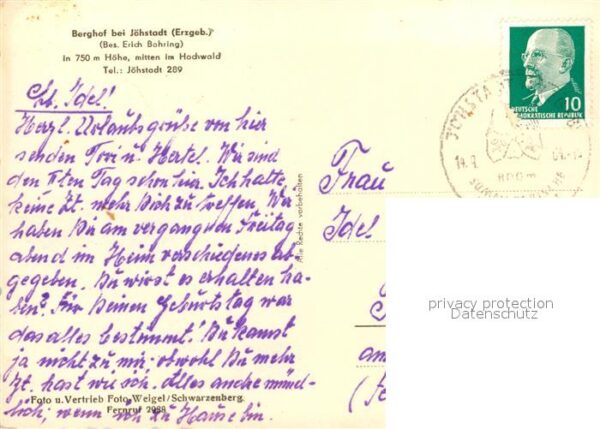 Berghof bei Jöhstadt (Erzgeb.)
(Bes. Erich Bohring)
In 750 m Höhe, mitten im Hochwald
Tel.: Jöhstadt 289
Lb. Idel!
Herzl. Urlaubsgrüße von hier
senden u. Hertel. Wir sind
den Tag schon hier. Ich hatte
keine Zt. mehr Dich zu treffen. Wir
haben Dir am vergangnen Freitag
abend im Heim verschiedenes ab-
gegeben. Du wirst es erhalten ha-
ben? Für Deinen Geburtstag war
das alles bestimmt! Du kamst
ja nicht zu mir, obwohl Du mehr
Zt. hast wie ich. Alles andre münd-
lich, wenn ich zu Hause bin.
Foto u. Vertrieb Foto-Weigel/Schwarzenberg
Fernruf 2988
Alle Rechte vorbehalten
Frau
Idel
DEUTSCHE
DEMOKRATISCHE REPUBLIK
10
800m
privacy protection
Datenschutz